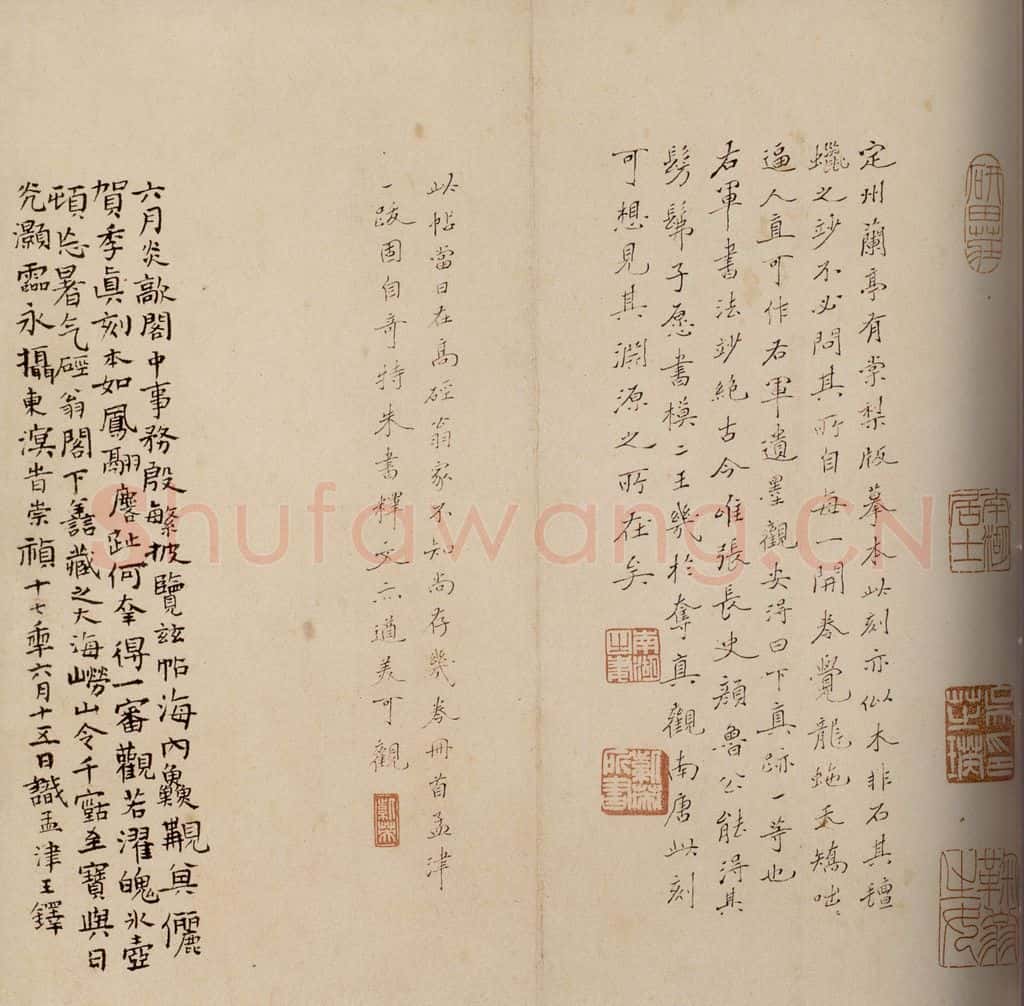 定州蘭亭有棠梨版摹本此刻亦似木非石其氊
蠟之玅不必問其所自每一開卷覺龍虵夭矯咄咄
逼人直可作右軍遺墨觀安得曰下真跡一等也
右軍書法玅絶古今唯張長史顔魯公能得其
髣髴子愿書模二王幾於奪真觀南唐此刻
可想見其淵源之所在矣
此帖當日在高硜翁家不知尚存幾卷冊首孟津
一跋固自奇特朱書釋文亦遒美可觀
六月炎歊閣中事務殷繁披覽茲帖海內鱻覯真儷
賀季真刻本如鳳翮麐趾何幸得一審觀若濯魄氷壺
頓忘暑气硜翁閣下善藏之大海嶗山令千
至寶與日
光灝靈永攝東溟旹崇禎十七年六月十五日識孟津王鐸
研思
南湖居士
Shufawang.CN